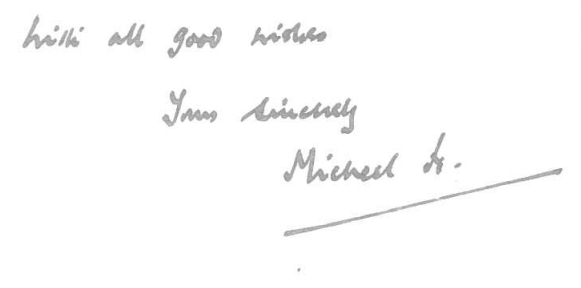 With all good wishes
Yours sincerely
Michael